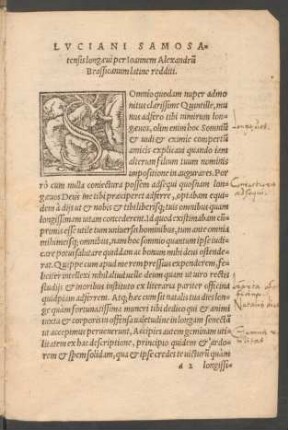 LVCIANI SAMOSA-
tensis longæui per Ioannem Alexandrū
Brassicanum latine redditi.
SOmnio quodam nuper admo
nitus clarissime Quintille, mu
nus adfero tibi nimirum lon
gæuos, olim enim hoc Somniū
& uidi & eximie
amicis explicaui quando tu
alterum filium tuum nominis
impositione in augurares. Por
rò cum nulla coniectura possem adsequi quosnam lon
gæuos Deus me tibi præciperet adferre, optabam equi
dem ut dij & nobis & tuis omnibus quam
longissimam uitam concederent. Id quod existimabam cū
primis esse utile tum uniuerso hominibus, tum ante omnia
mihi meisq; omnibus, nam hoc somnio quantum ipse iudi-
care potui salutare quoddam ac bonum mihi deus ostende-
rat. Quippe cum apud me rem pressius expenderem, fe-
deum quam ut uiro rectis
studijs & moribus instituto ex literaria pariter officina
quidpiam adferrem. Atq; hæc cum sit natalis tui dies lon-
ge quàm fortunatissima muneri tibi dedico qui & animi
iuxta & corporis in offensa ualetudine in longam senectā
ut accepimus peruenerunt. Accipies autem geminam utili-
tatem ex hac descriptione, principio quidem & ardo-
rem & spem solidam, qua & ipse credes te uicturū quàm
d 2 longissi-
Longæui.